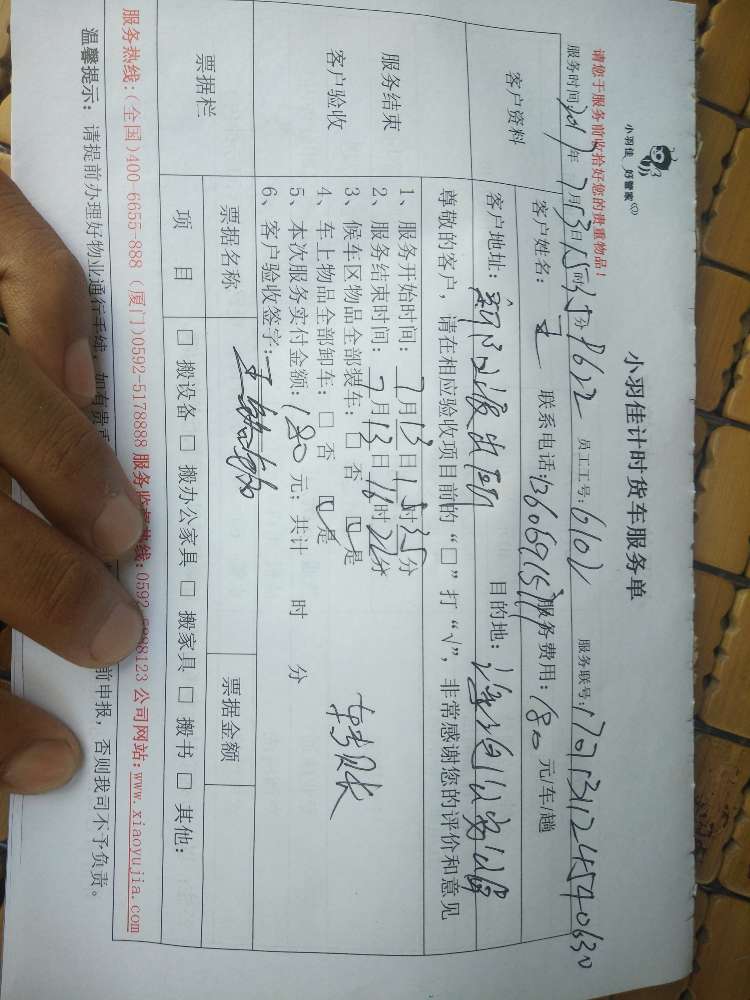 小羽佳 好管家
小羽佳计时货车服务单
请您于服务前收拾好您的贵重物品!
服务时间: 2017年7月13日15时35分 员工工号: 6102 服务联号: 170713112454063
客户资料
客户姓名: 联系电话: 服务费用: 180 元/车/趟
客户地址: 派出所 目的地:
尊敬的客户,请在相应验收项目前的“□”打“√”,非常感谢您的评价和意见
服务结束
客户验收
1、服务开始时间: 7月13日15时35分
2、服务结束时间: 7月13日16时22分
3、候车区物品全部装车: □ 否 □ 是
4、车上物品全部卸车: □ 否 □ 是
5、本次服务实付金额: 180 元; 共计 时 分
6、客户验收签字:
票据栏 票据名称 票据金额
项 目 □ 搬设备 □ 搬办公家具 □ 搬家具 □ 搬书 □ 其他:
服务热线:(全国)400-6655-888 (厦门)0592-5178888 服务监督热线:0592- 公司网站:www.xiaoyujia.com
温馨提示: 请提前办理好物业通行手续,如有贵重 前申报,否则我司不予负责。